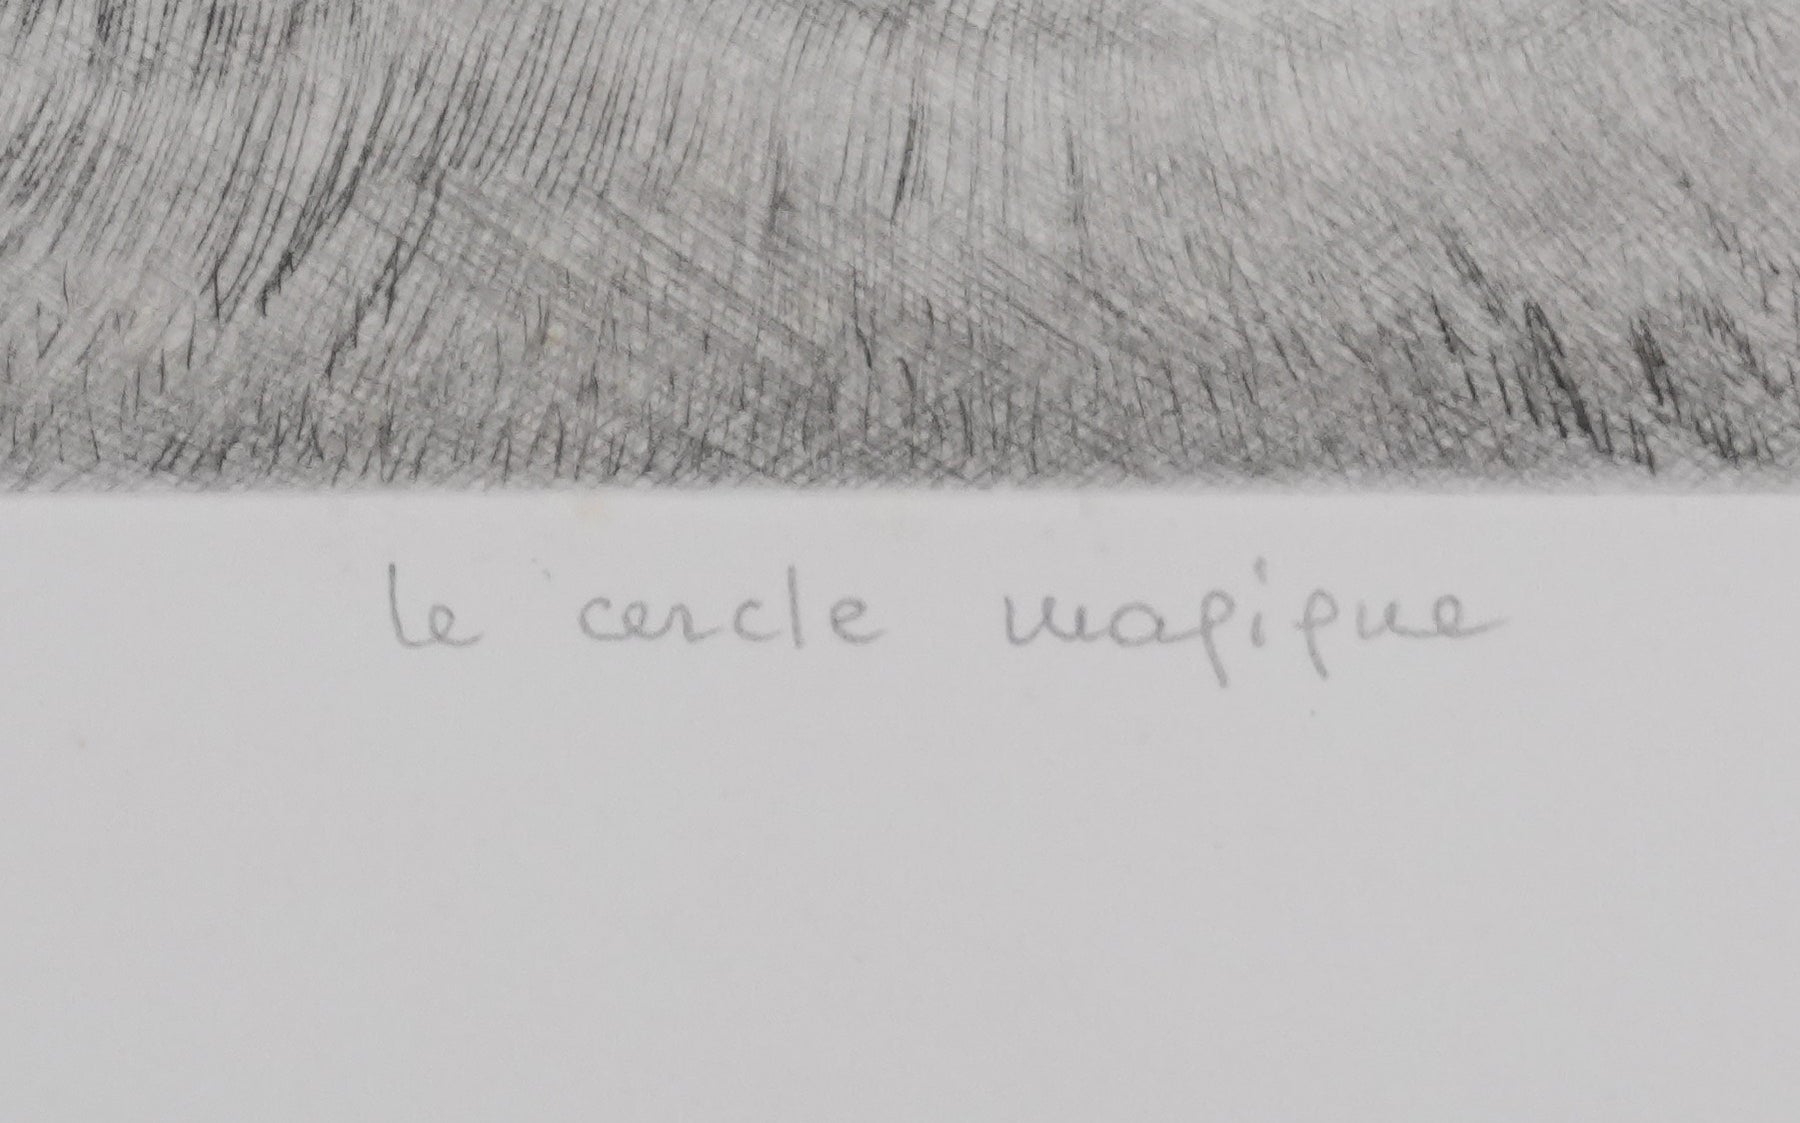 le cercle magique